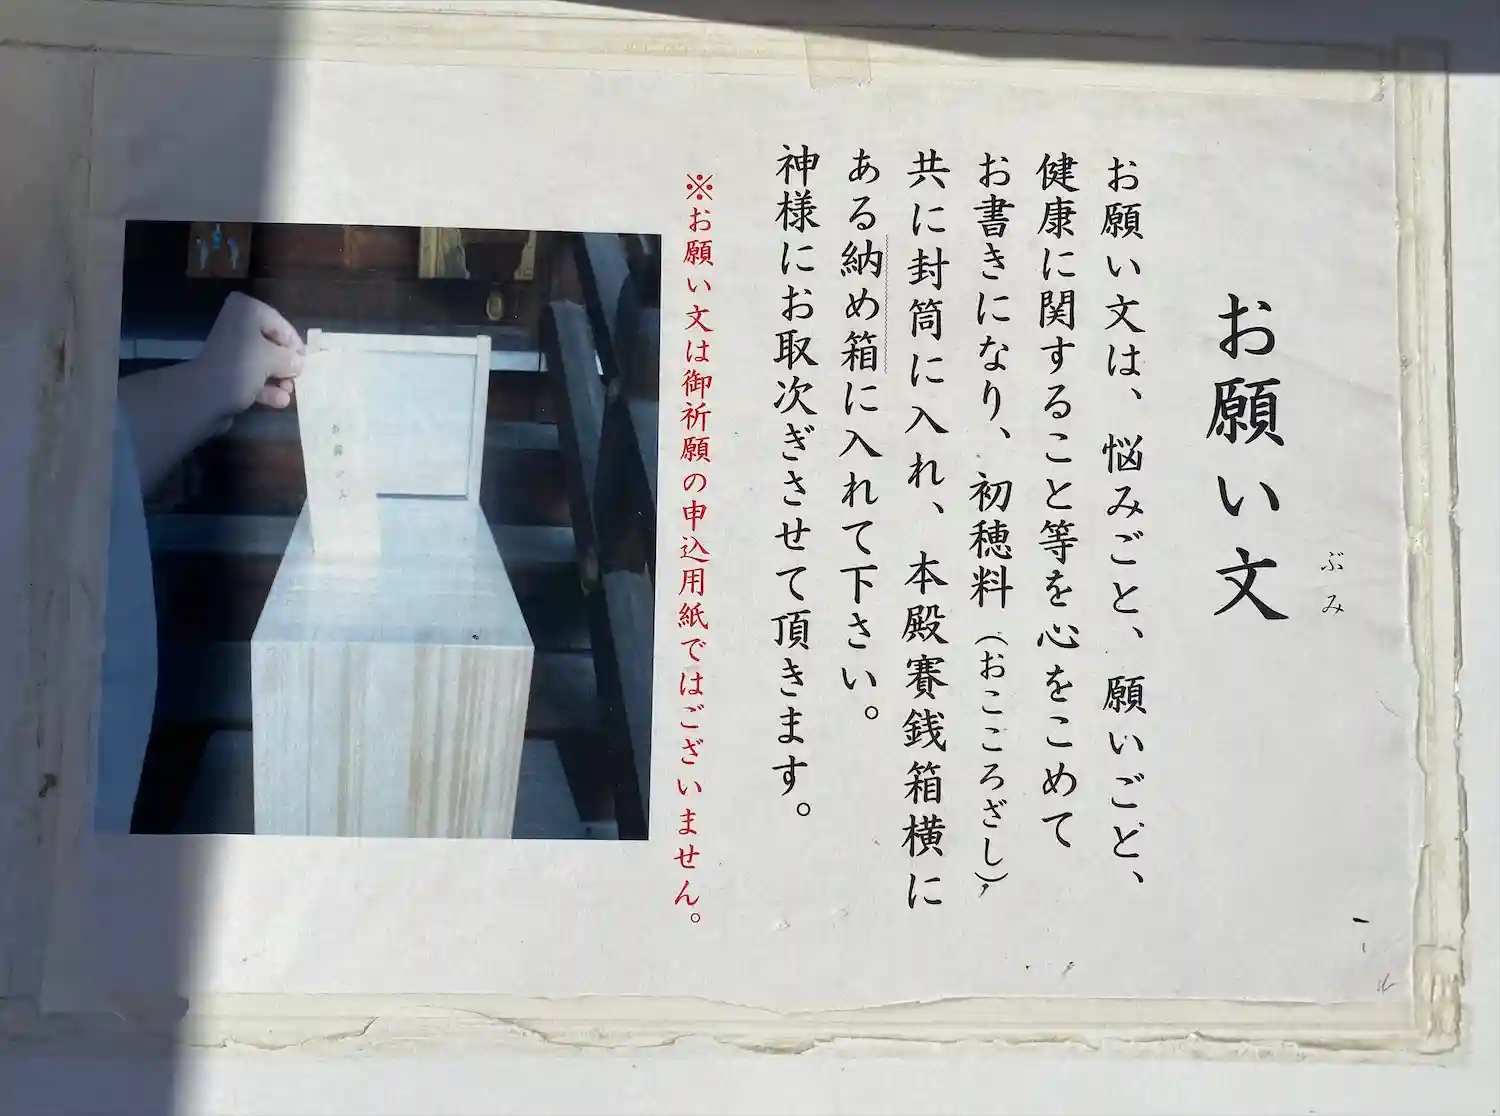 お願い文
ぶみ
お願い文は、悩みごと、願いごど、
健康に関すること等を心をこめて
お書きになり、初穂料（おこころざし）、
共に封筒に入れ、本殿賽銭箱横に
ある納め箱に入れて下さい。
神様にお取次ぎさせて頂きます。
※お願い文は御祈願の申込用紙ではございません。
お願い文